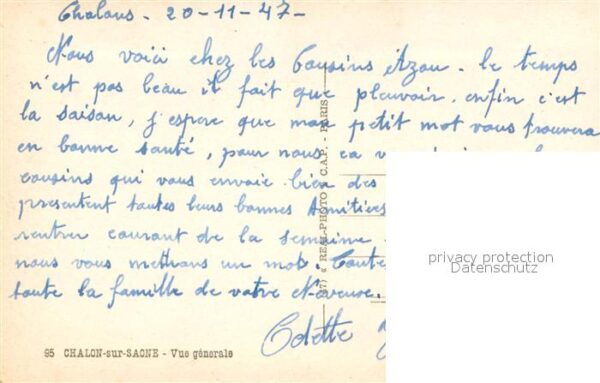 Chalons - 20-11-47-
Nous voici chez les Cousins Azou - le temps
n'est pas beau il fait que pleuvoir. enfin c'est
la saison, j'espere que mon petit mot vous trouvera
en bonne santé, pour nous ca
cousins qui vous envoie bien des
presentent toutes leurs bonnes Amitiés
rentrer courant de la semaine
nous vous mettrons un mot. Toute
toute la famille de votre
Odette
95 CHALON-sur-SAONE - Vue générale
(47) « REAL-PHOTO » C.A.P. - PARIS
privacy protection
Datenschutz